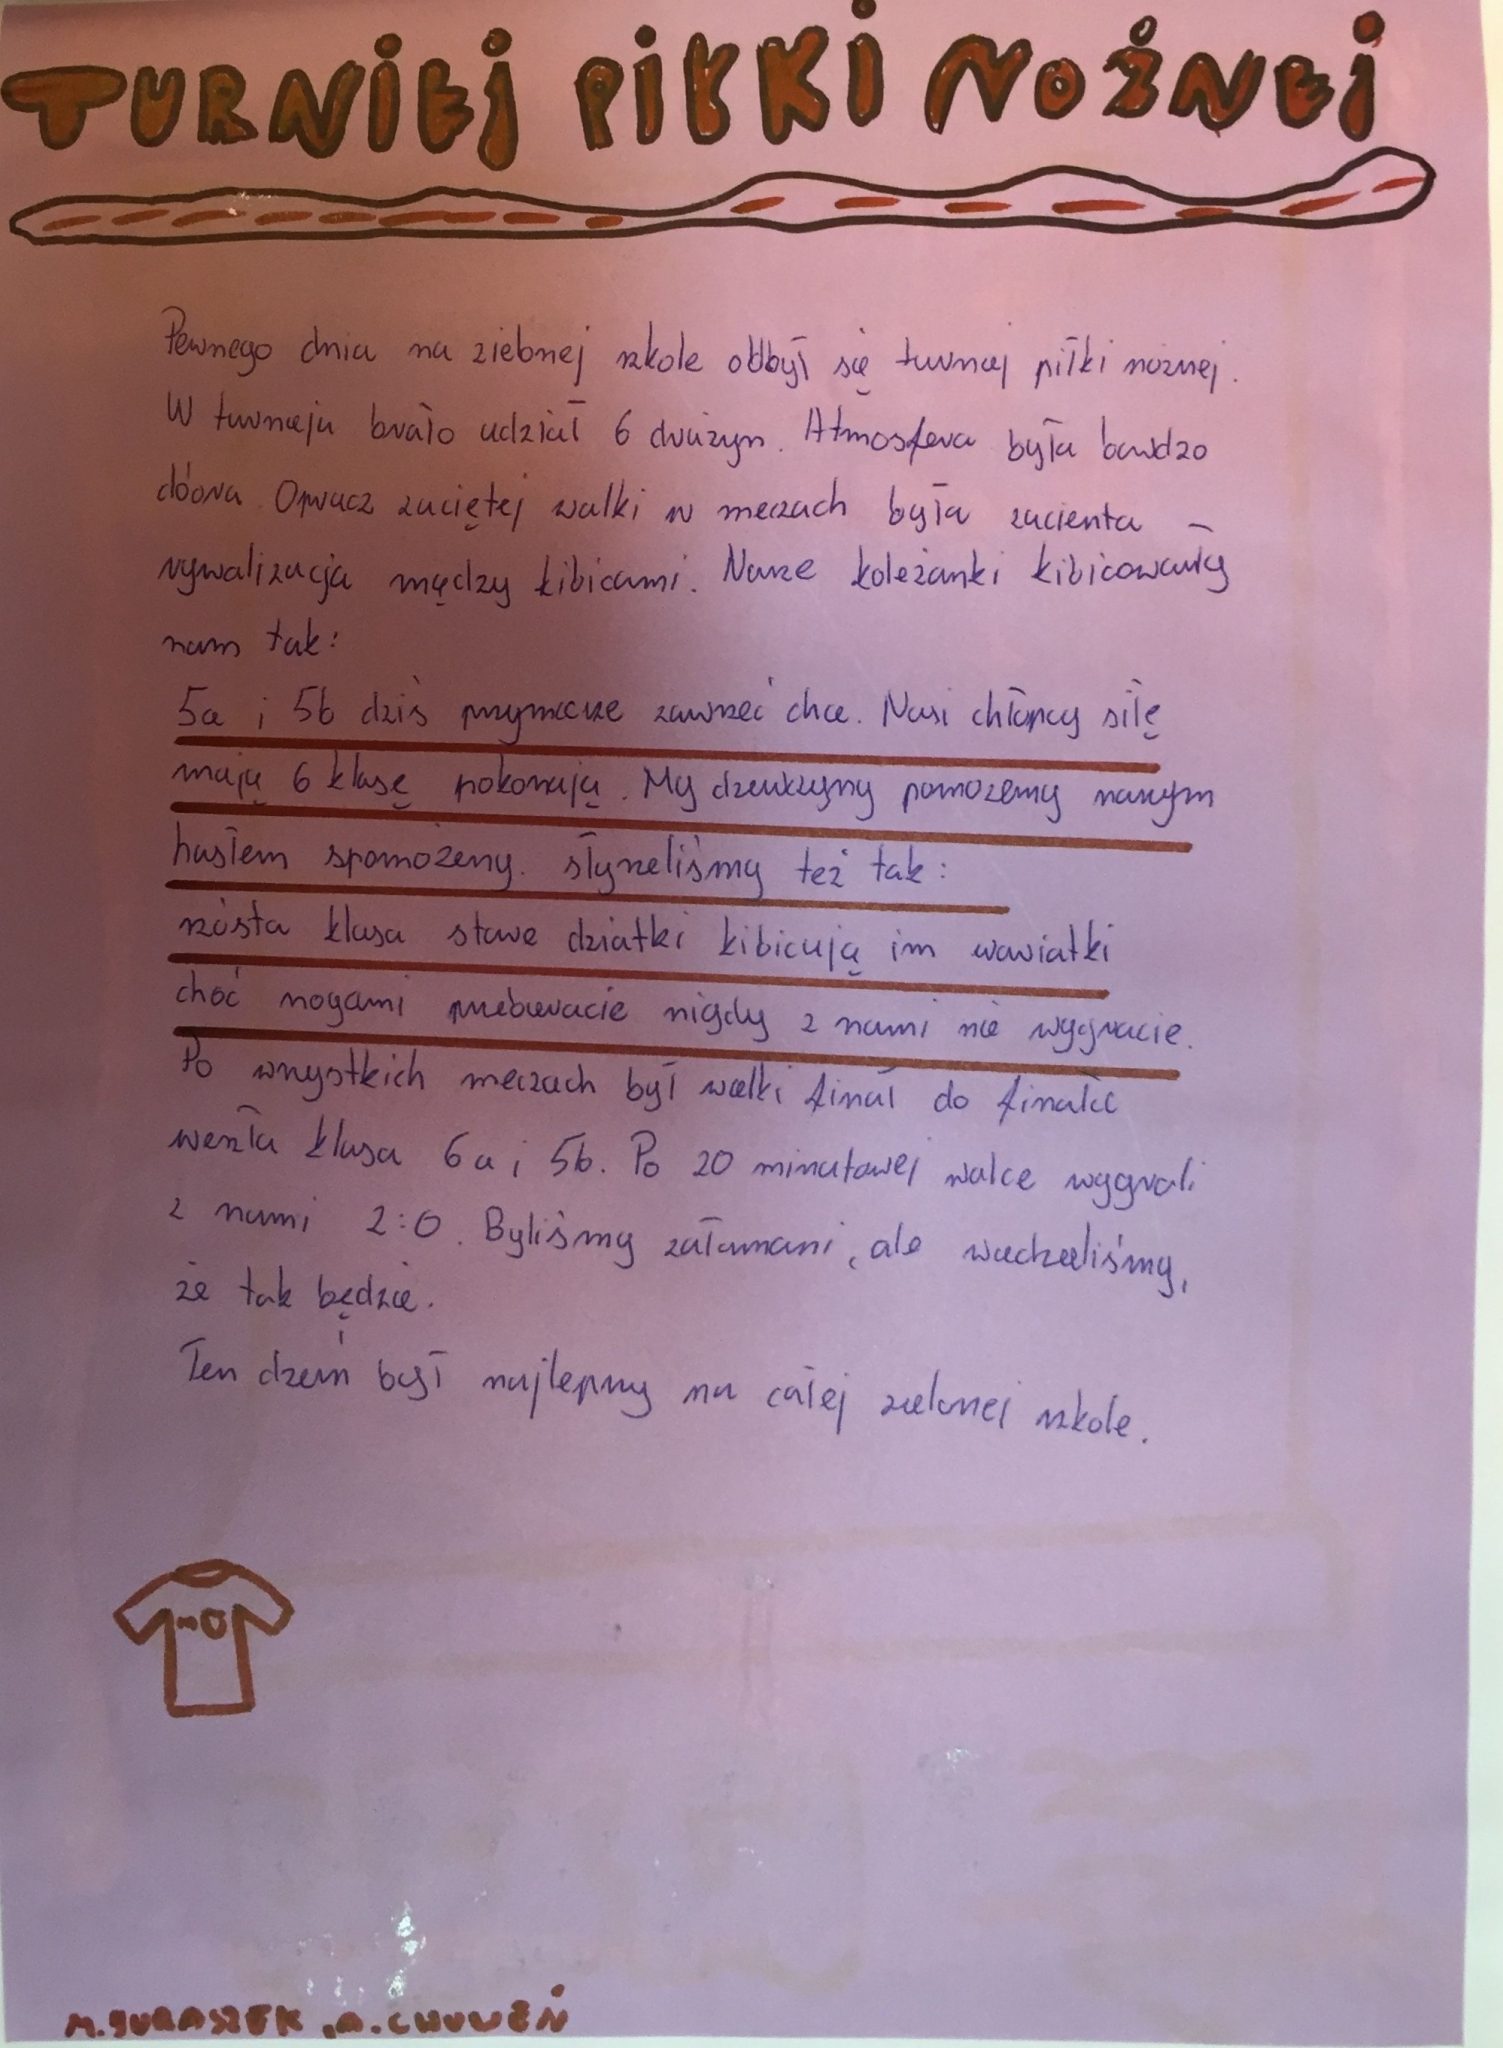 TURNIEJ PIŁKI NOŻNEJ
Pewnego dnia na zielonej szkole odbył się turniej piłki nożnej.
W turnieju brało udział 6 drużyn. Atmosfera była bardzo
dobra. Oprucz zaciętej walki w meczach była zacienta
rywalizacja mędzy kibicami. Nasze koleżanki kibicowały
nam tak:
5a i 5b dziś przymierze zawrzeć chce. Nasi chłopcy siłę
mają 6 klasę pokonają. My dziewczyny pomożemy naszym
hasłem spomożeny. słyszeliśmy też tak:
szósta klasa stare dziatki kibicują im wariatki
choć nogami przebieracie nigdy z nami nie wygracie.
Po wszystkich meczach był wielki finał do finału
weszła klasa 6a i 5b. Po 20 minutowej walce wygrali
z nami 2:0. Byliśmy załamani, ale wiedzieliśmy,
że tak będzie.
Ten dzień był najlepszy na całej zielonej szkole.
M. JURASZEK, A.